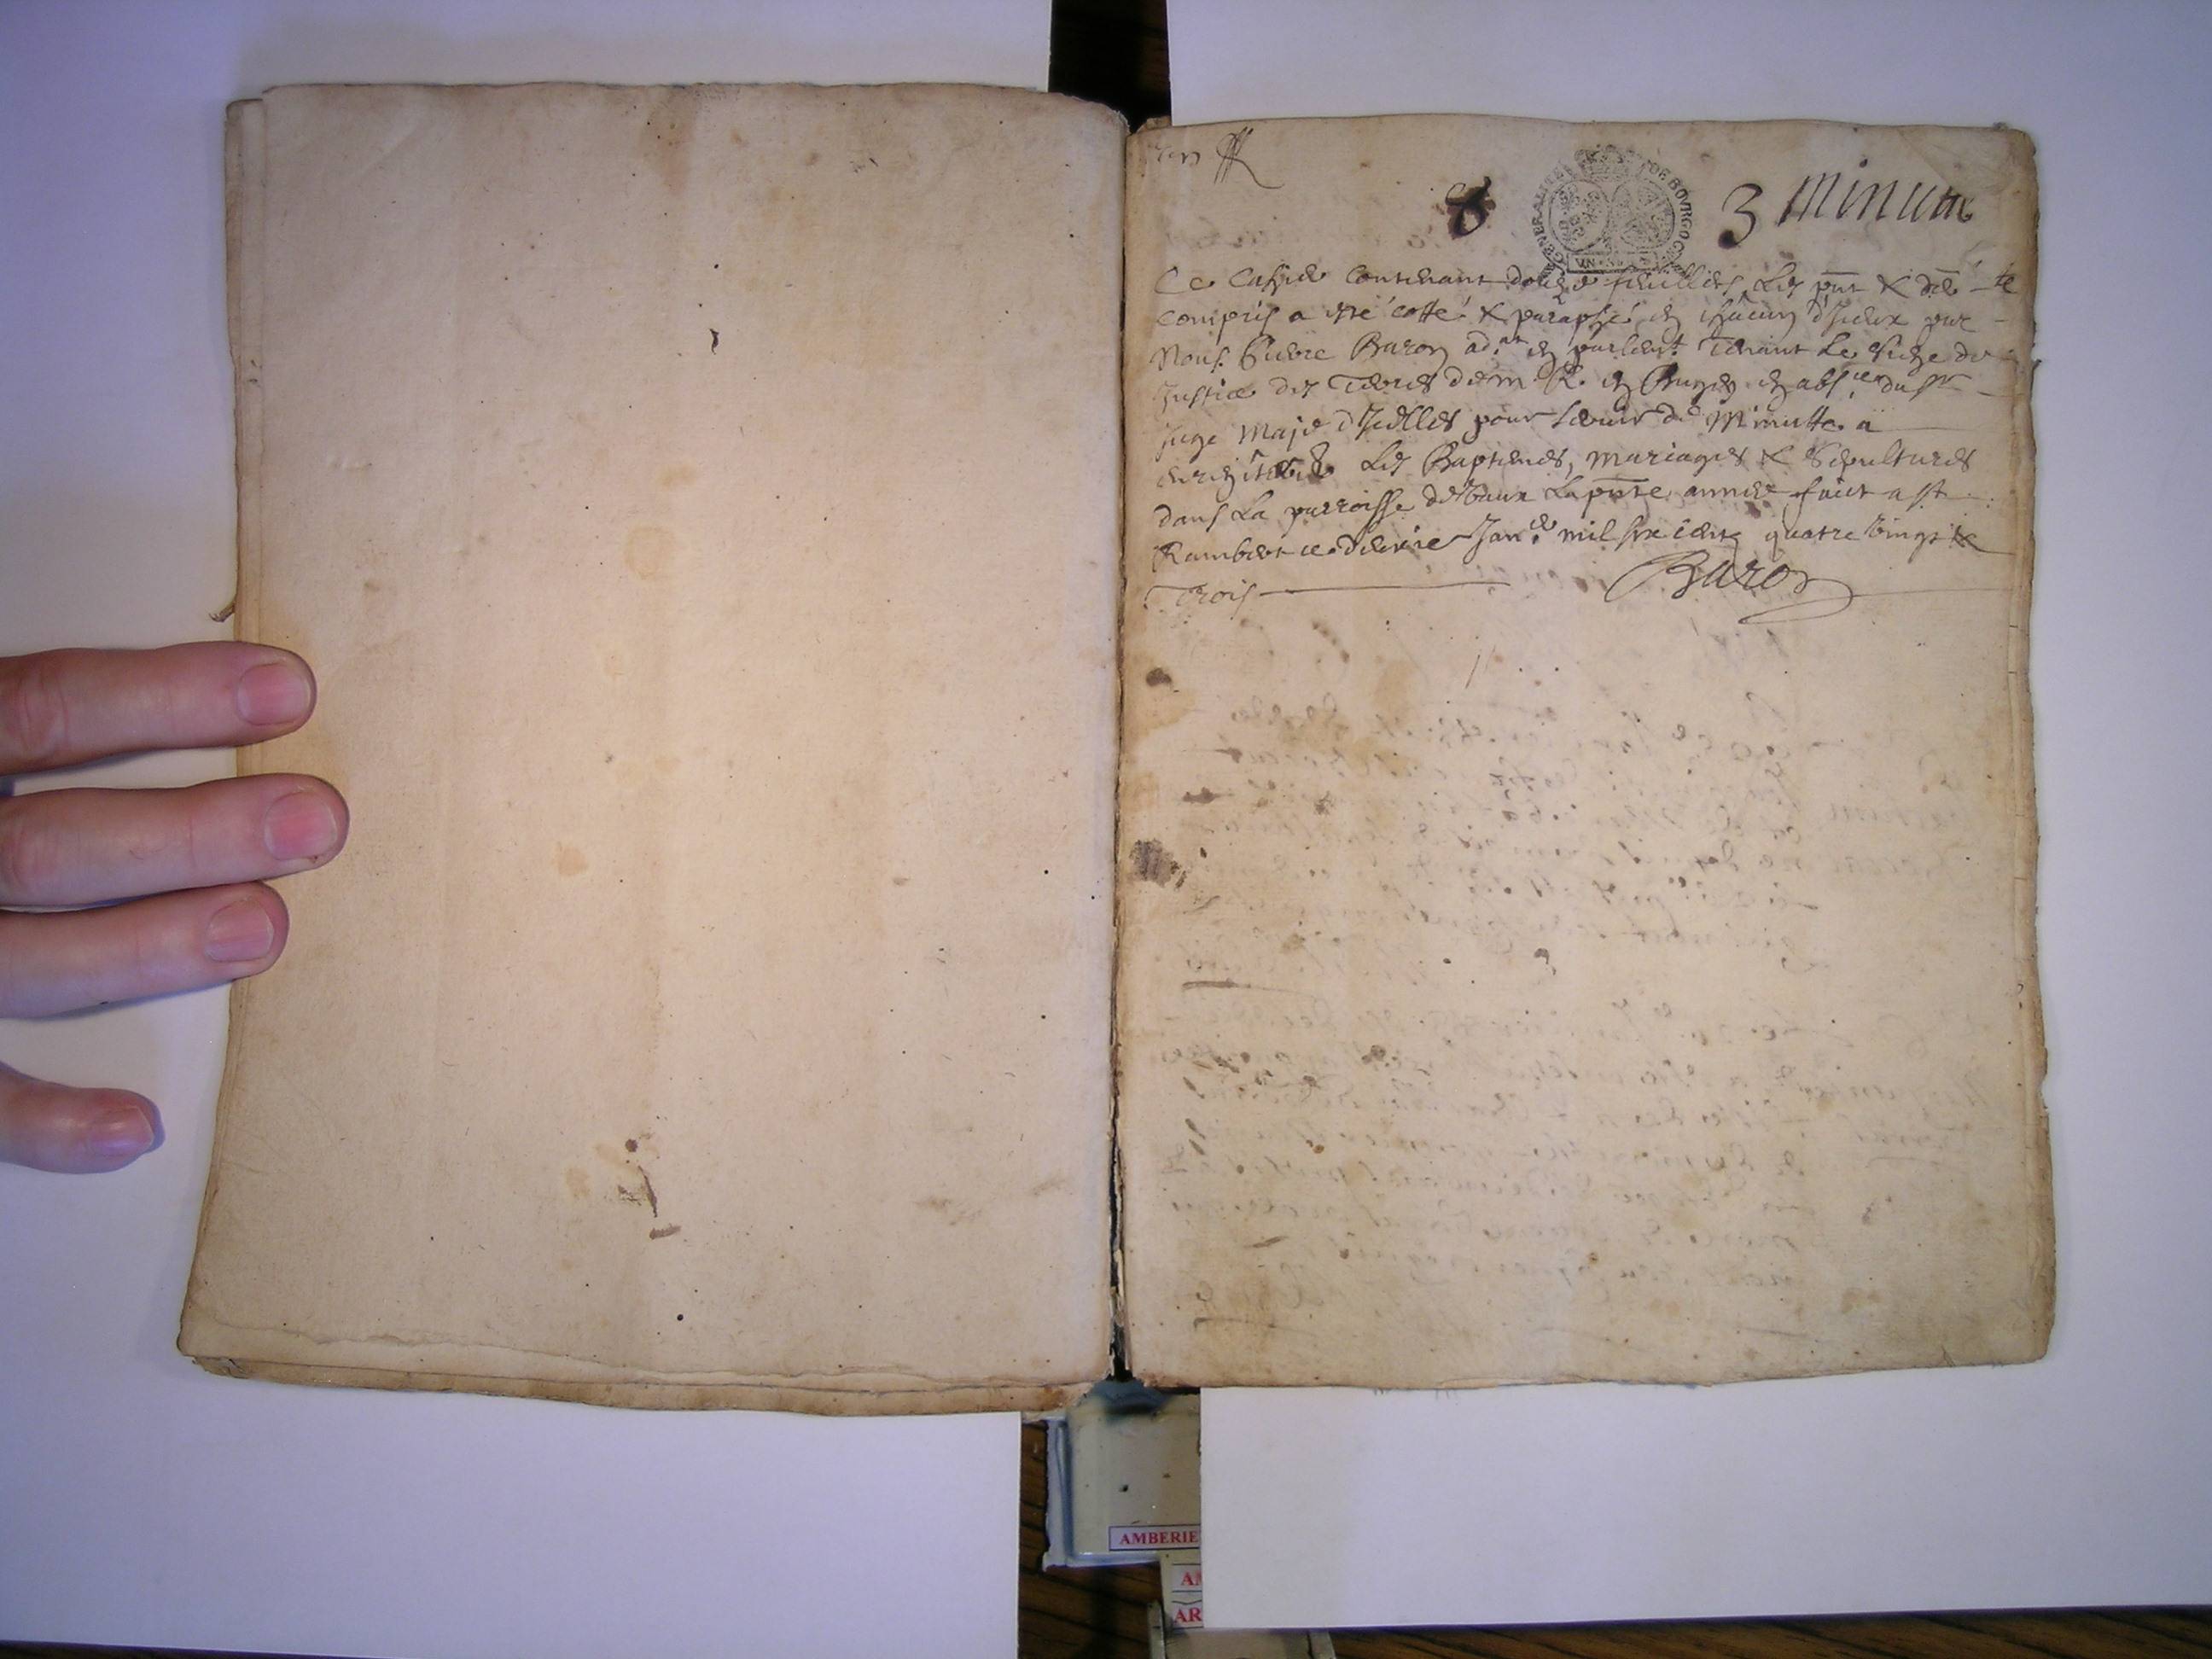 8
GENERALITE DE BOVRGO
3 Minutte
Ce Cahier contenant douze feuillets, Les pnt & der
compris a esté cotté & paraphé en chacun d'Iceux par
Nous Pierre Baron ad.at en parlemt Tenant Le Siege de
Justice des Terres de m. R. en Bugey en absce du Sr
Juge Maje d'Icelles pour servir de Minutte a
Les Baptemes, mariages & Sepultures
dans La parroisse La pnte année fait a St
Rambert ce Janer mil six cents quatre vingt &
Trois
Baron
AMBERIE
AR